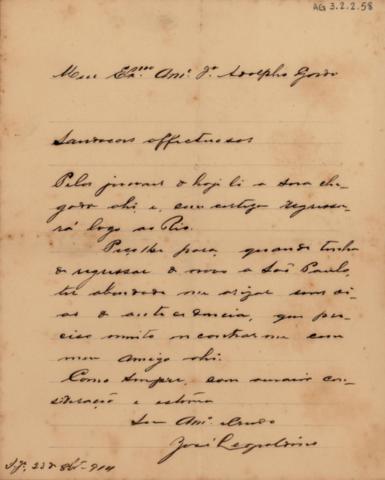 AG 3.2.2.58
Meu Ex.mo Am.o Dr. Adolpho Gordo
Saudações affectuosas
Pelos jornaes d hoje li a sua che-
gada ahi e, com certeza regressa-
rá logo ao Rio.
Peço-lhe para, quando tenha
de regressar de novo a São Paulo,
ter a bondade me avizar uns di-
as de antecedencia, que pre-
ciso muito encontrar me com
meu amigo ahi.
Como sempre, com a maior con-
sideração e estima
Seu Am.o
José Leopoldino
23 914